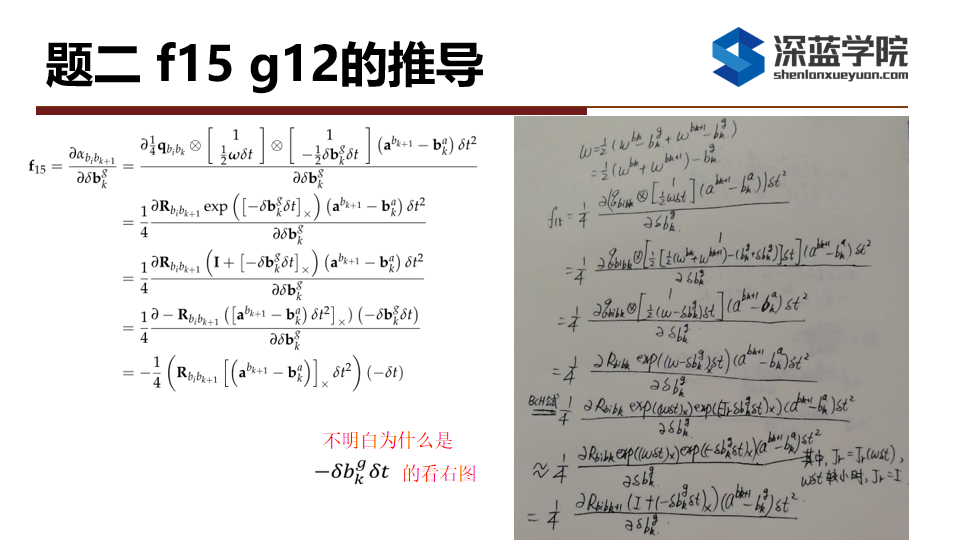 题二 f15 g12的推导
深蓝学院
shenlanxueyuan.com
f₁₅ = ∂α_{b_i b_{k+1}} / ∂δb_k^g = ∂ 1/4 q_{b_i b_k} ⊗ [1; 1/2 ωδt] ⊗ [1; −1/2 δb_k^g δt] (a^{b_{k+1}} − b_k^a) δt² / ∂δb_k^g
= 1/4 ∂R_{b_i b_{k+1}} exp([−δb_k^g δt]_×) (a^{b_{k+1}} − b_k^a) δt² / ∂δb_k^g
= 1/4 ∂R_{b_i b_{k+1}} (I + [−δb_k^g δt]_×) (a^{b_{k+1}} − b_k^a) δt² / ∂δb_k^g
= 1/4 ∂ − R_{b_i b_{k+1}} ([a^{b_{k+1}} − b_k^a) δt²]_×) (−δb_k^g δt) / ∂δb_k^g
= −1/4 (R_{b_i b_{k+1}} [(a^{b_{k+1}} − b_k^a)]_× δt²) (−δt)
不明白为什么是
−δb_k^g δt 的看右图
ω = 1/2 (ω^{b_k} − b_k^g + ω^{b_{k+1}} − b_k^g)
= 1/2 (ω^{b_k} + ω^{b_{k+1}}) − b_k^g
f₁₅ = 1/4 ∂(q_{b_i b_k} ⊗ [1; 1/2 ωδt] (a^{b_{k+1}} − b_k^a)) δt² / ∂δb_k^g
= 1/4 ∂q_{b_i b_k} ⊗ [1; 1/2 [1/2 (ω^{b_k} + ω^{b_{k+1}}) − (b_k^g + δb_k^g)] δt] (a^{b_{k+1}} − b_k^a) δt² / ∂δb_k^g
= 1/4 ∂q_{b_i b_k} ⊗ [1; 1/2 (ω − δb_k^g) δt] (a^{b_{k+1}} − b_k^a) δt² / ∂δb_k^g
= 1/4 ∂R_{b_i b_k} exp((ω − δb_k^g)_× δt) (a^{b_{k+1}} − b_k^a) δt² / ∂δb_k^g
BCH公式 = 1/4 ∂R_{b_i b_k} exp((ωδt)_×) exp((−J_r δb_k^g δt)_×) (a^{b_{k+1}} − b_k^a) δt² / ∂δb_k^g
≈ 1/4 ∂R_{b_i b_k} exp((ωδt)_×) exp((−δb_k^g δt)_×) (a^{b_{k+1}} − b_k^a) δt² / ∂δb_k^g
其中, J_r = J_r(ωδt),
ωδt 较小时, J_r = I
= 1/4 ∂R_{b_i b_{k+1}} (I + (−δb_k^g δt)_×) (a^{b_{k+1}} − b_k^a) δt² / ∂δb_k^g